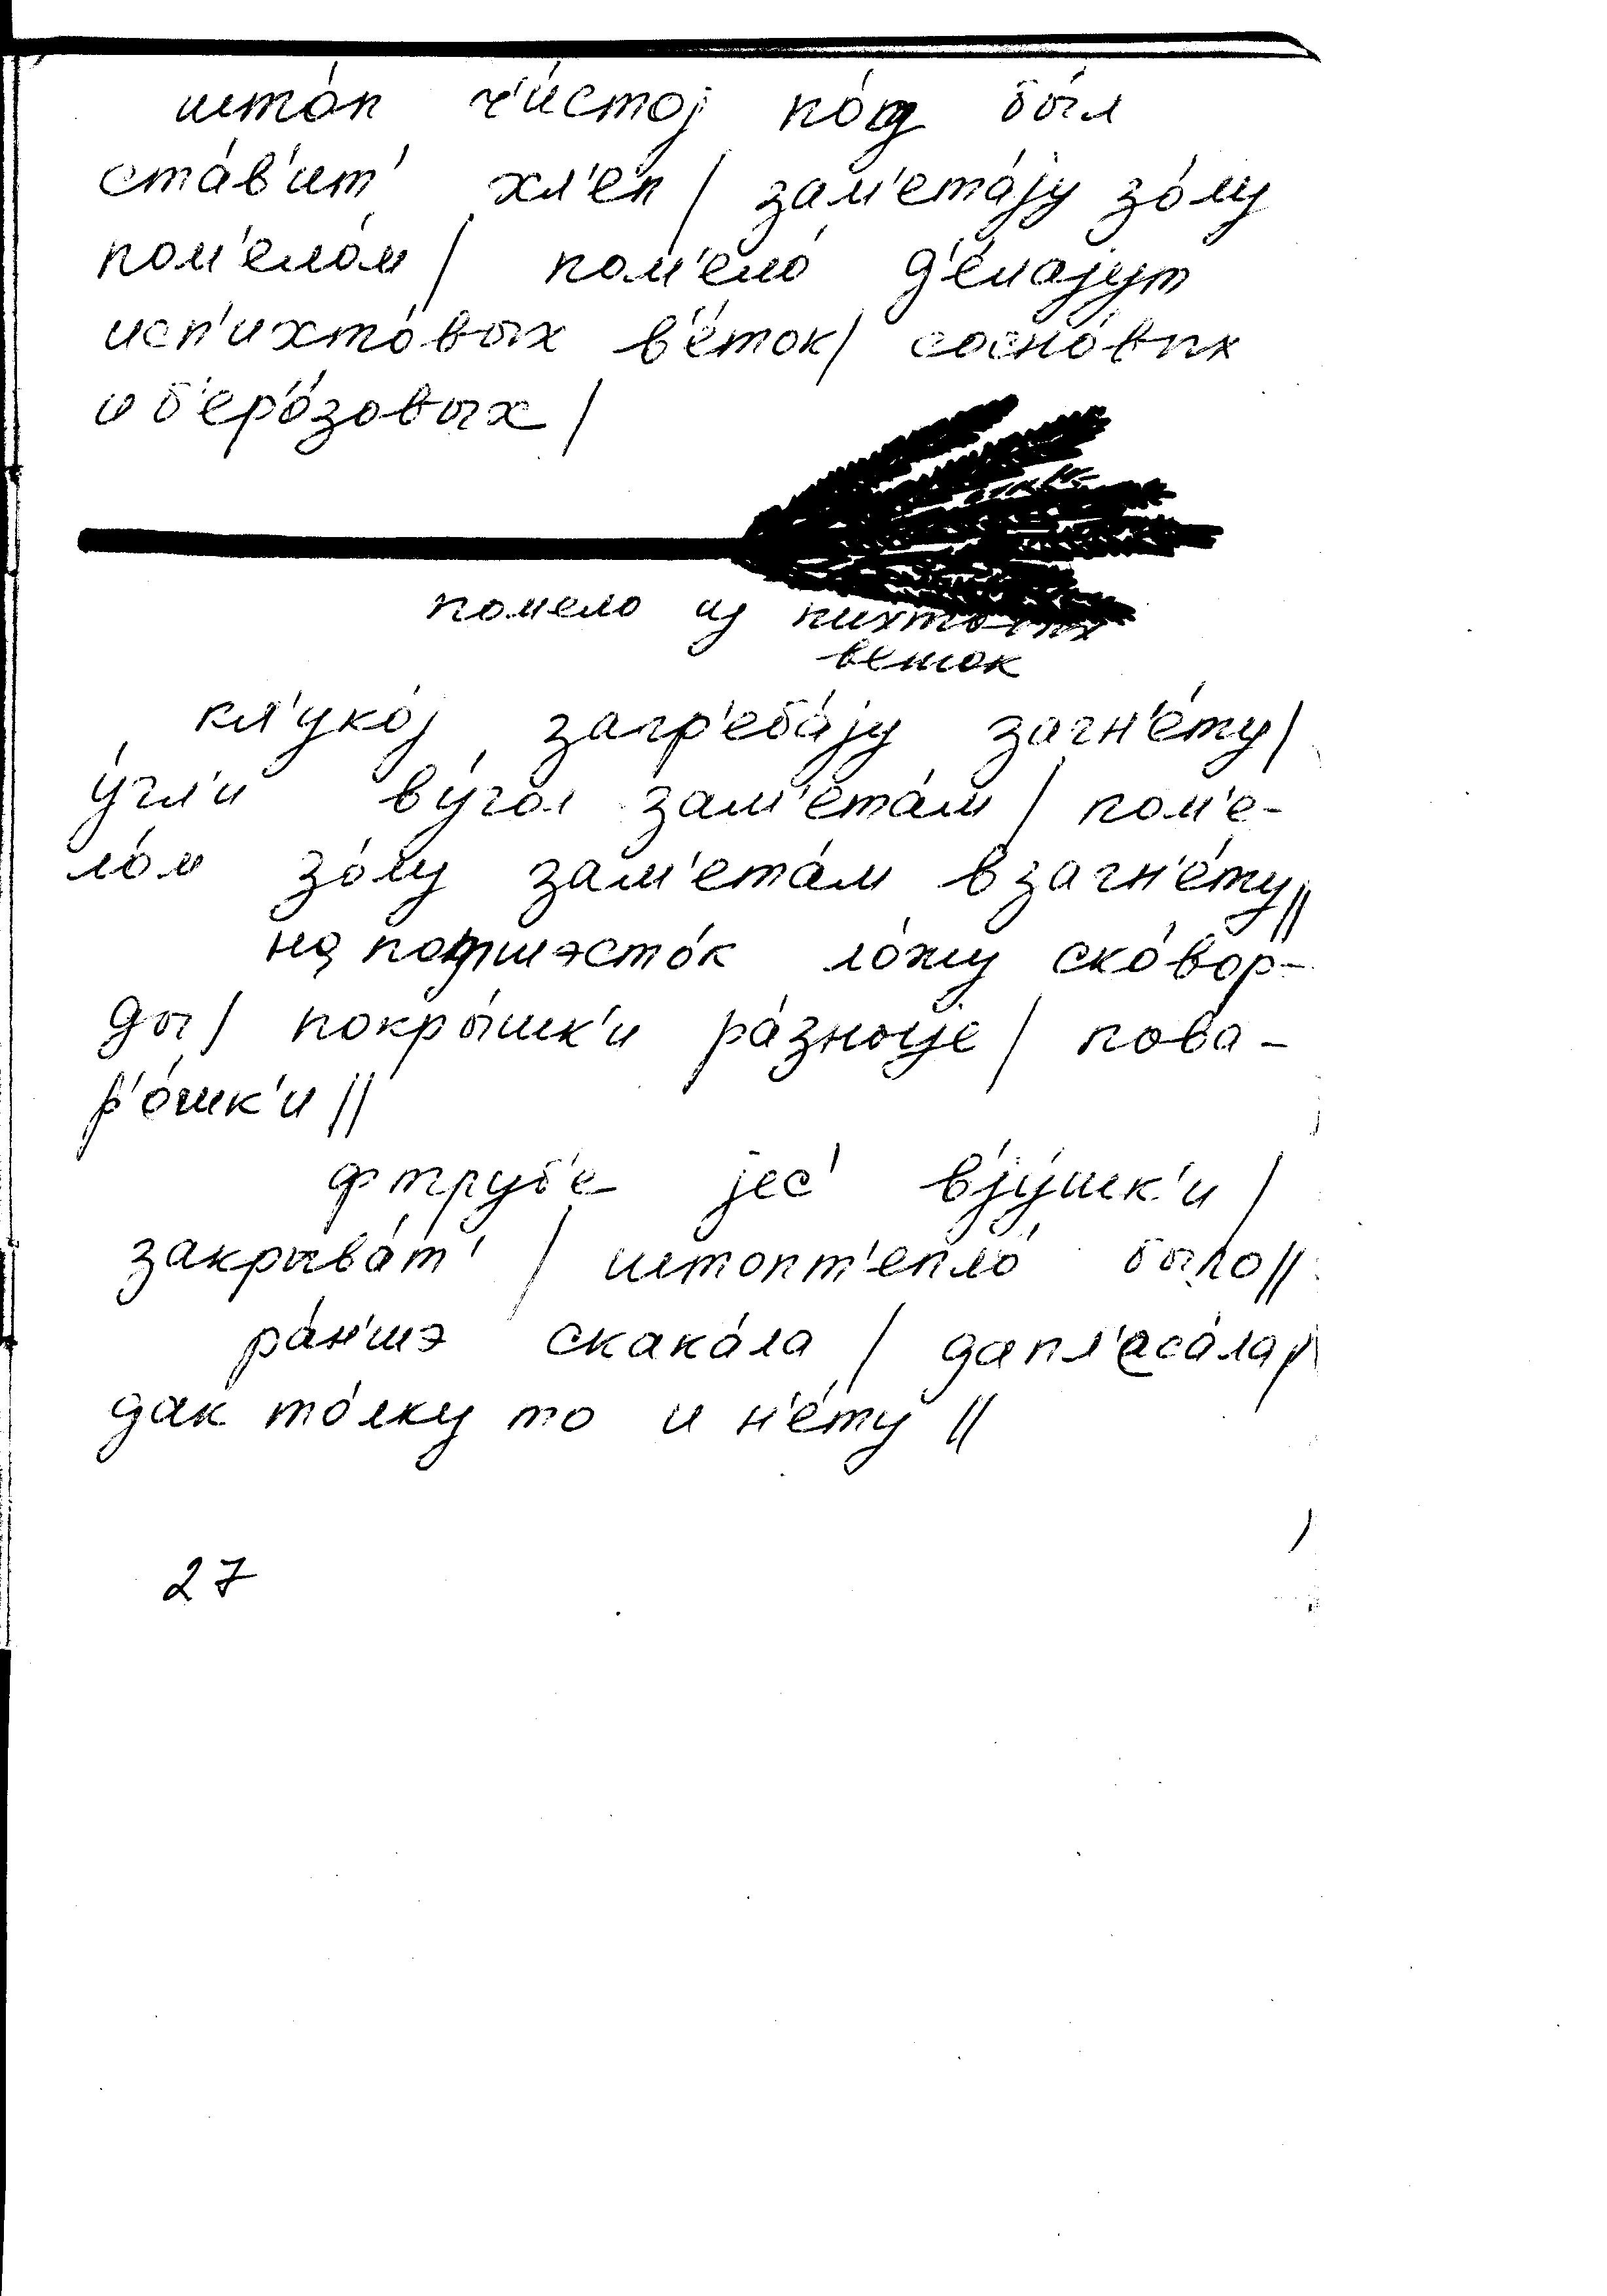 што́п ч'и́стој по́д бы́л
ста́в'ит' хл'еп / зам'ета́ју зо́лу
пом'ело́м / пом'ело́ д'е́лајут
исп'ихто́вых в'е́ток / сосно́вых
и б'ер'о́зовых /
помело из пихтовых
веток
кл'уко́ј загр'еба́ју загн'е́ту /
у́гл'и ву́гол зам'ета́м / пом'е-
ло́м зо́лу зам'ета́м взагн'е́ту //
на потшэсто́к ло́жу ско́вор-
ды / покры́шк'и ра́зныје / пова-
р'о́шк'и //
фтруб'е јес' в'ју́шк'и /
закрыва́т' / штопт'епло́ было //
ра́н'шэ скака́ла / дапл'аса́ла /
дак то́лку то и н'е́ту //
27